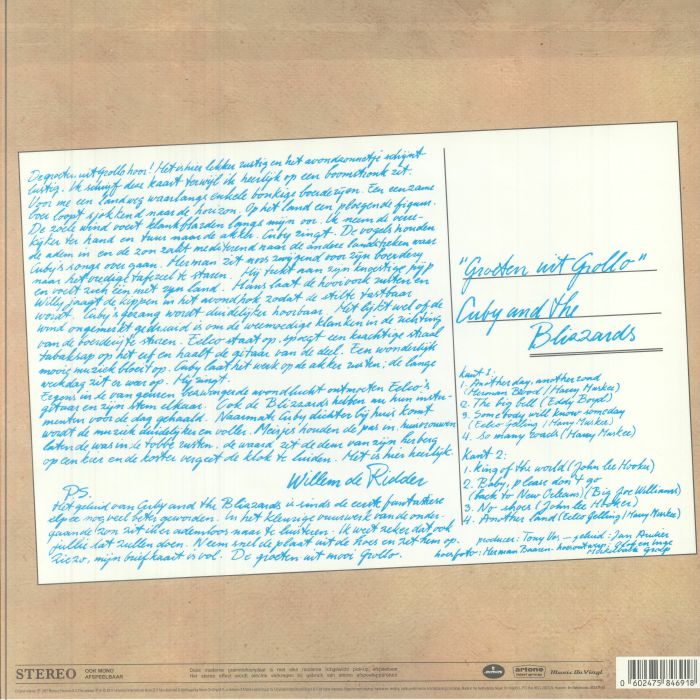 De groeten uit Grollo hoor! Het is hier lekker rustig en het avondzonnetje schijnt
lustig. Ik schrijf deze kaart terwijl ik heerlijk op een boomstronk zit.
Voor me een landweg waarlangs enkele bonkige boerderijen. Een eenzame
boer loopt sjokkend naar de horizon. Op het land een ploegende figuur.
De zoele wind voert klankflarden langs mijn oor. Ik neem de verre-
kijker ter hand en tuur naar de akker. Cuby zingt. De vogels houden
de adem in en de zon zakt mediterend naar de andere landstreken waar
Cuby's songs over gaan. Herman zit nors zwijgend voor zijn boerderij
naar het vredig tafereel te staren. Hij trekt aan zijn knoestige pijp
en voelt zich één met zijn land. Hans laat de hooivork rusten en
Willy jaagt de kippen in het avondhok zodat de stilte tastbaar
wordt. Cuby's gezang wordt duidelijker hoorbaar. Het lijkt wel of de
wind ongemerkt gedraaid is om de weemoedige klanken in de richting
van de boerderij te sturen. Eelco staat op, spuugt een krachtige straal
tabaksap op het erf en haalt de gitaar van de deel. Een wonderlijk
mooie muziek bloeit op. Cuby laat het werk op de akker rusten; de lange
werkdag zit er weer op. Hij zingt.
Ergens in de van geuren bezwangerde avondlucht ontmoeten Eelco's
gitaar en zijn stem elkaar. Ook de Blizzards hebben nu hun instru-
menten voor de dag gehaald. Naarmate Cuby dichter bij huis komt
wordt de muziek duidelijker en voller. Meisjes houden de pas in, huisvrouwen
laten de was in de tobbe rusten, de waard zet de deur van zijn herberg
op een kier en de koster vergeet de klok te luiden. Het is hier heerlijk.
Willem de Ridder
PS.
Het geluid van Cuby and the Blizzards is sinds de eerste fantastiese
elpee nog veel beter geworden. In het kleurige vuurwerk van de onder-
gaande zon zit ik er ademloos naar te luisteren. Ik weet zeker dat ook
jullie dat zullen doen. Neem snel de plaat uit de hoes en zet hem op.
Ziezo, mijn briefkaart is vol. De groeten uit mooi Grollo.
"Groeten uit Grollo"
Cuby and the
Blizzards
Kant 1:
1. Another day, another road
(Herman Brood / Harry Muskee)
2. The big bell (Eddy Boyd)
3. Somebody will know someday
(Eelco Gelling / Harry Muskee)
4. So many roads (Harry Muskee)
Kant 2:
1. King of the world (John Lee Hooker)
2. Baby, please don't go
(back to New Orleans) (Big Joe Williams)
3. No shoes (John Lee Hooker)
4. Another land (Eelco Gelling / Harry Muskee)
producer: Tony Vos - geluid: Jan Audier
hoesfoto: Herman Baaren - hoesontwerp:
STEREO
OOK MONO
AFSPEELBAAR
artone
Music On Vinyl
0 602475 846918